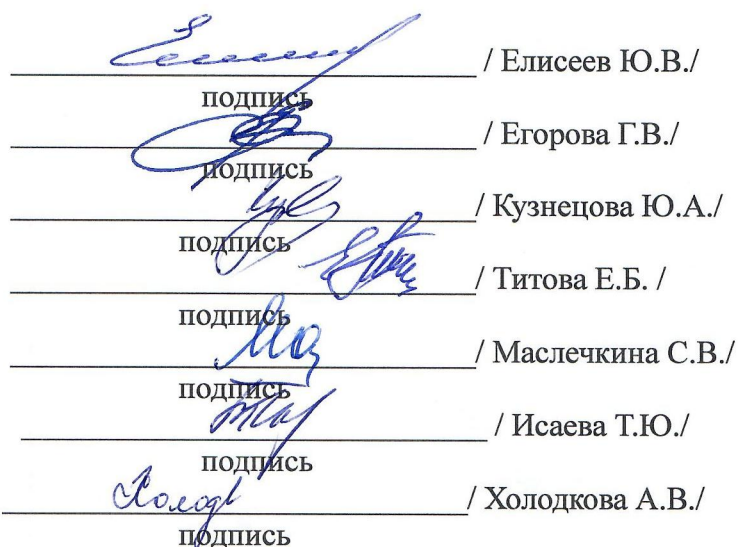 / Елисеев Ю.В./
подпись
/ Егорова Г.В./
подпись
/ Кузнецова Ю.А./
подпись
/ Титова Е.Б. /
подпись
/ Маслечкина С.В./
подпись
/ Исаева Т.Ю./
подпись
Холод / Холодкова А.В./
подпись